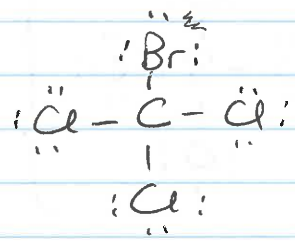 :Br:
:Cl – C – Cl:
:Cl: